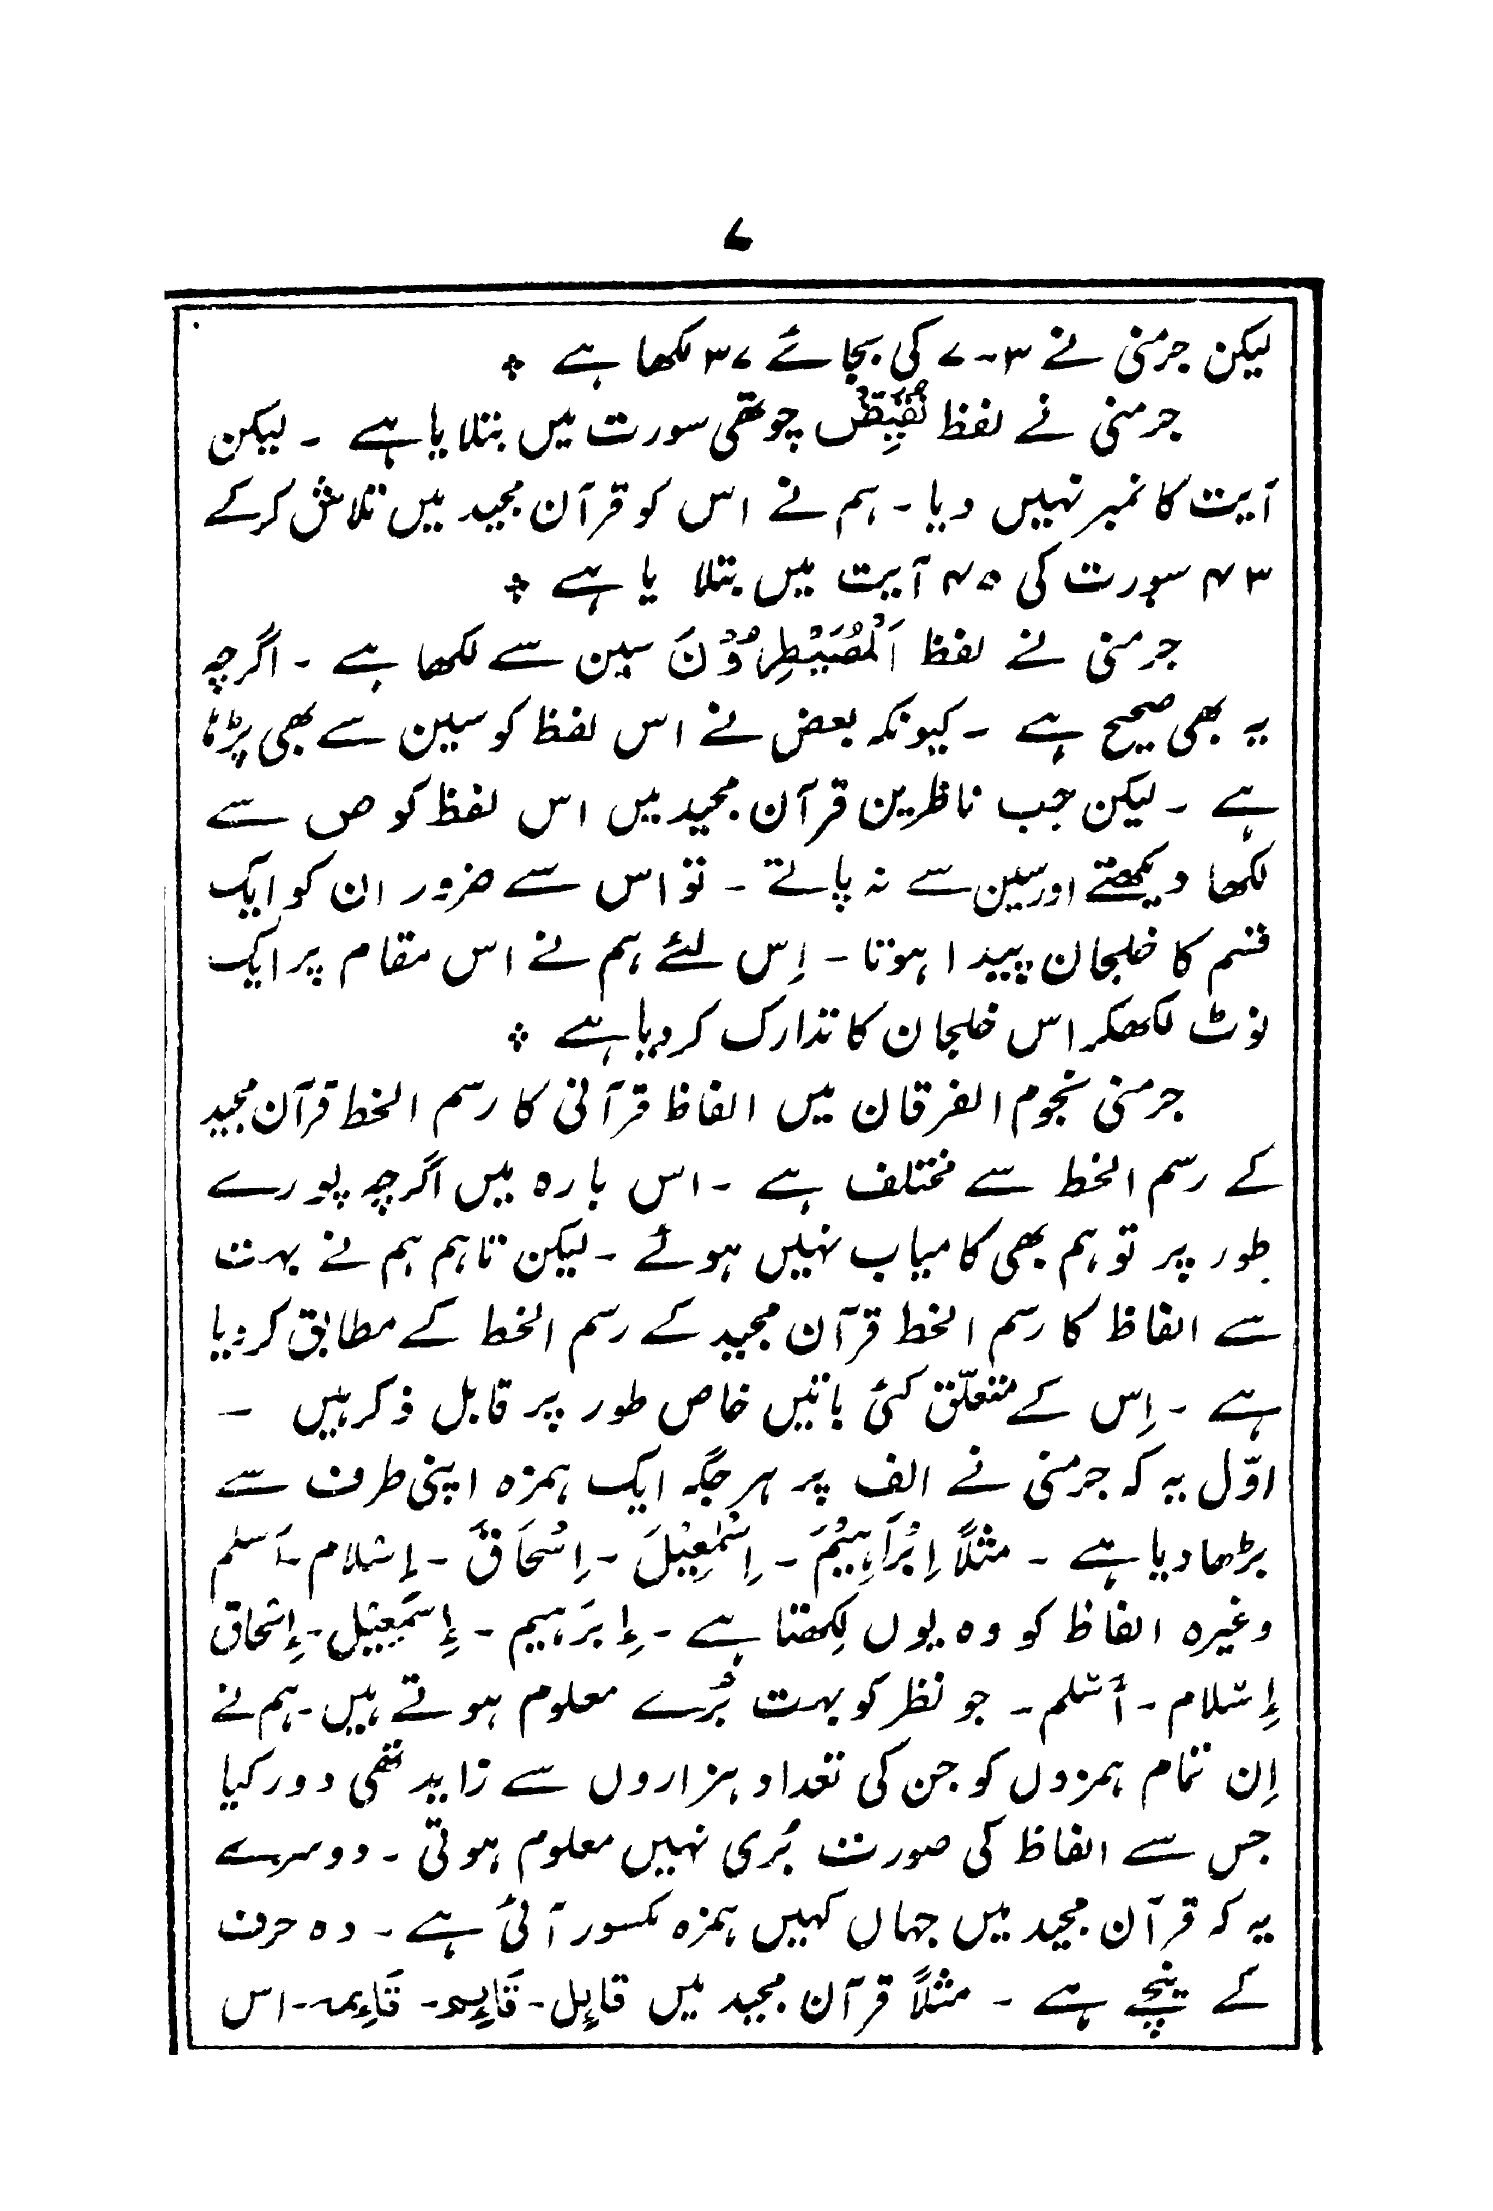 ۷
لیکن جرمنی نے ۳-۷ کی بجائے ۳۷ لکھا ہے ٭
جرمنی نے لفظ نُقَیِّضْ چوتھی سورت میں بتلایا ہے ۔ لیکن
آیت کا نمبر نہیں دیا ۔ ہم نے اس کو قرآن مجید میں تلاش کرکے
۴۳ سورت کی ۳۵ آیت میں بتلا یا ہے ٭
جرمنی نے لفظ اَلْمُصَیْطِرُوْنَ سین سے لکھا ہے ۔ اگرچہ
یہ بھی صحیح ہے ۔ کیونکہ بعض نے اس لفظ کو سین سے بھی پڑہا
ہے ۔ لیکن جب ناظرین قرآن مجید میں اس لفظ کو ص سے
لکھا دیکھتے اور سین سے نہ پاتے ۔ تو اس سے ضرور ان کو ایک
قسم کا خلجان پیدا ہوتا ۔ اِس لئے ہم نے اس مقام پر ایک
نوٹ لکھکر اس خلجان کا تدارک کر دیا ہے ٭
جرمنی نجوم الفرقان میں الفاظ قرآنی کا رسم الخط قرآن مجید
کے رسم الخط سے مختلف ہے ۔ اس بارہ میں اگرچہ پورے
طور پر تو ہم بھی کامیاب نہیں ہوئے ۔ لیکن تاہم ہم نے بہت
سے الفاظ کا رسم الخط قرآن مجید کے رسم الخط کے مطابق کر دیا
ہے ۔ اِس کے متعلّق کئی باتیں خاص طور پر قابل ذکر ہیں ۔
اوّل یہ کہ جرمنی نے الف پر ہر جگہ ایک ہمزہ اپنی طرف سے
بڑھا دیا ہے ۔ مثلاً اِبْرَاہِیْمَ ۔ اِسْمٰعِیْلَ ۔ اِسْحَاقَ ۔ اِسْلام ۔ اَسلم
وغیرہ الفاظ کو وہ یوں لِکھتا ہے ۔ إبرَہیم ۔ إِسمَعِیْل ۔ إِسْحاق
إِسْلام ۔ أَسْلم ۔ جو نظر کو بہت بُرے معلوم ہوتے ہیں ۔ ہم نے
اِن تمام ہمزوں کو جن کی تعداد ہزاروں سے زاید تھی دور کیا
جس سے الفاظ کی صورت بُری نہیں معلوم ہوتی ۔ دوسرے
یہ کہ قرآن مجید میں جہاں کہیں ہمزہ مکسور آئی ہے ۔ وہ حرف
کے نیچے ہے ۔ مثلاً قرآن مجید میں قاىِٕل ۔ قَاىِٕم ۔ قَاىِٕمہ ۔ اس